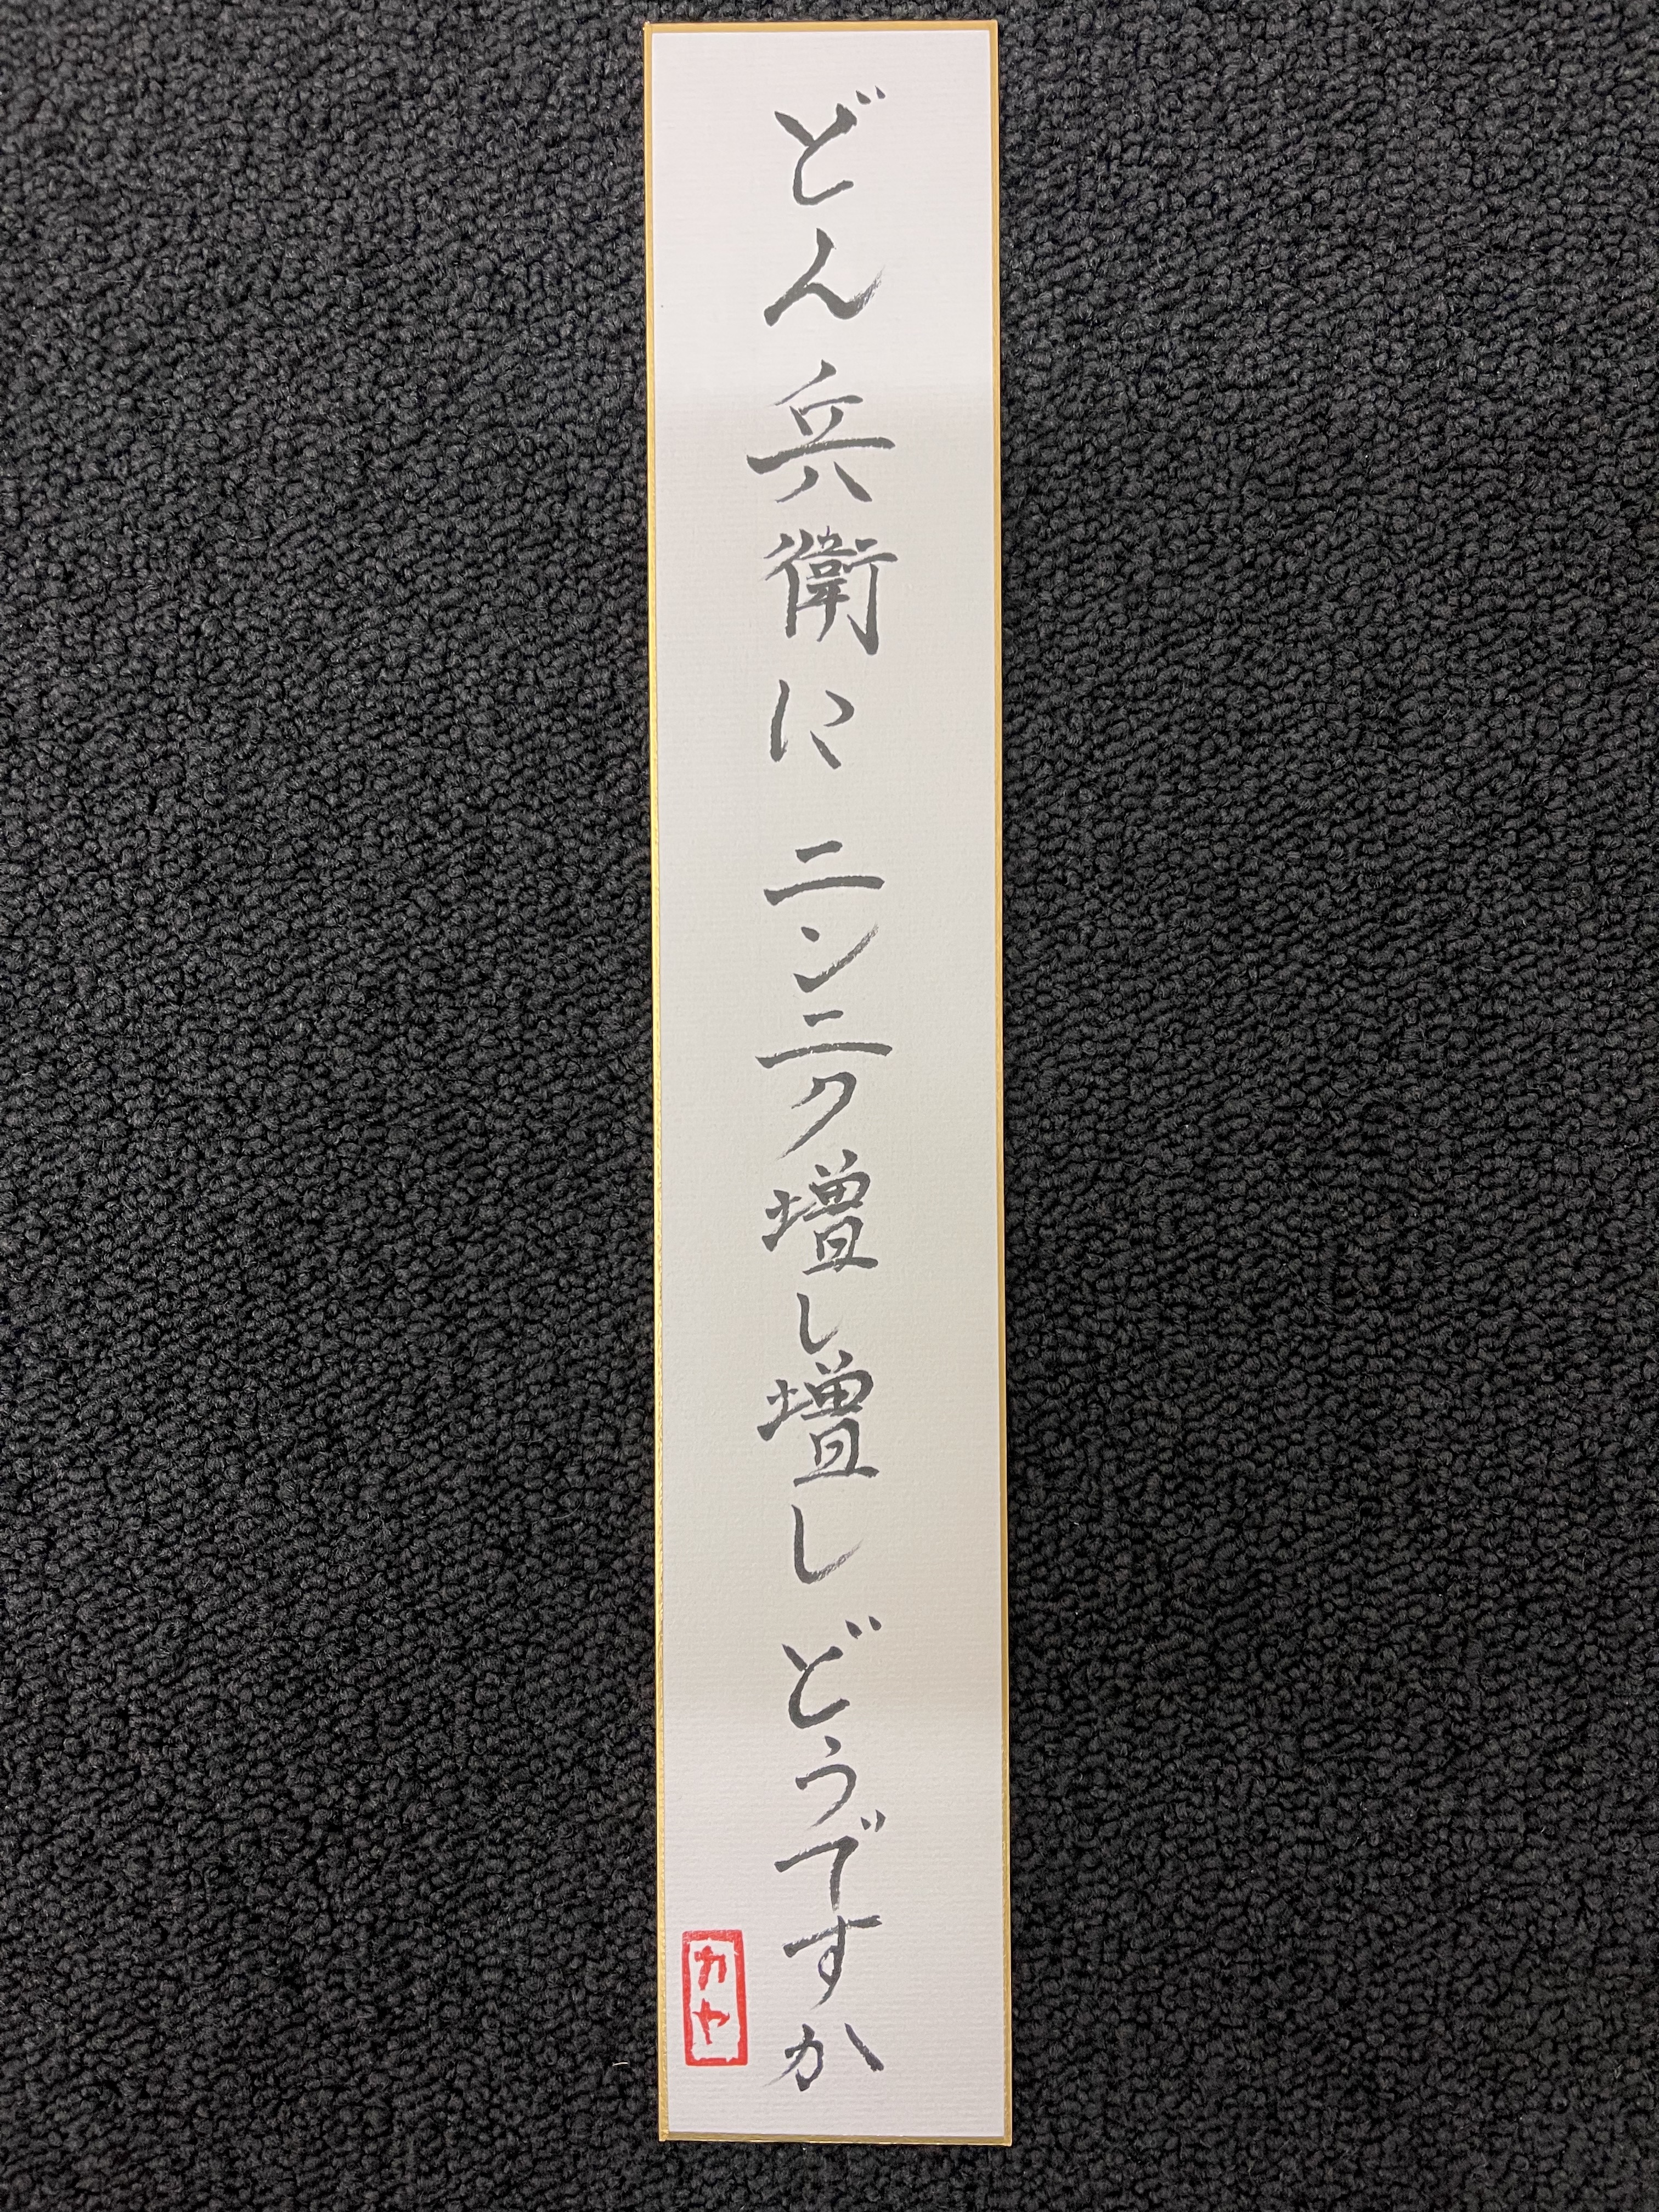 どん兵衛に ニンニク増し増し どうですか
カヤ